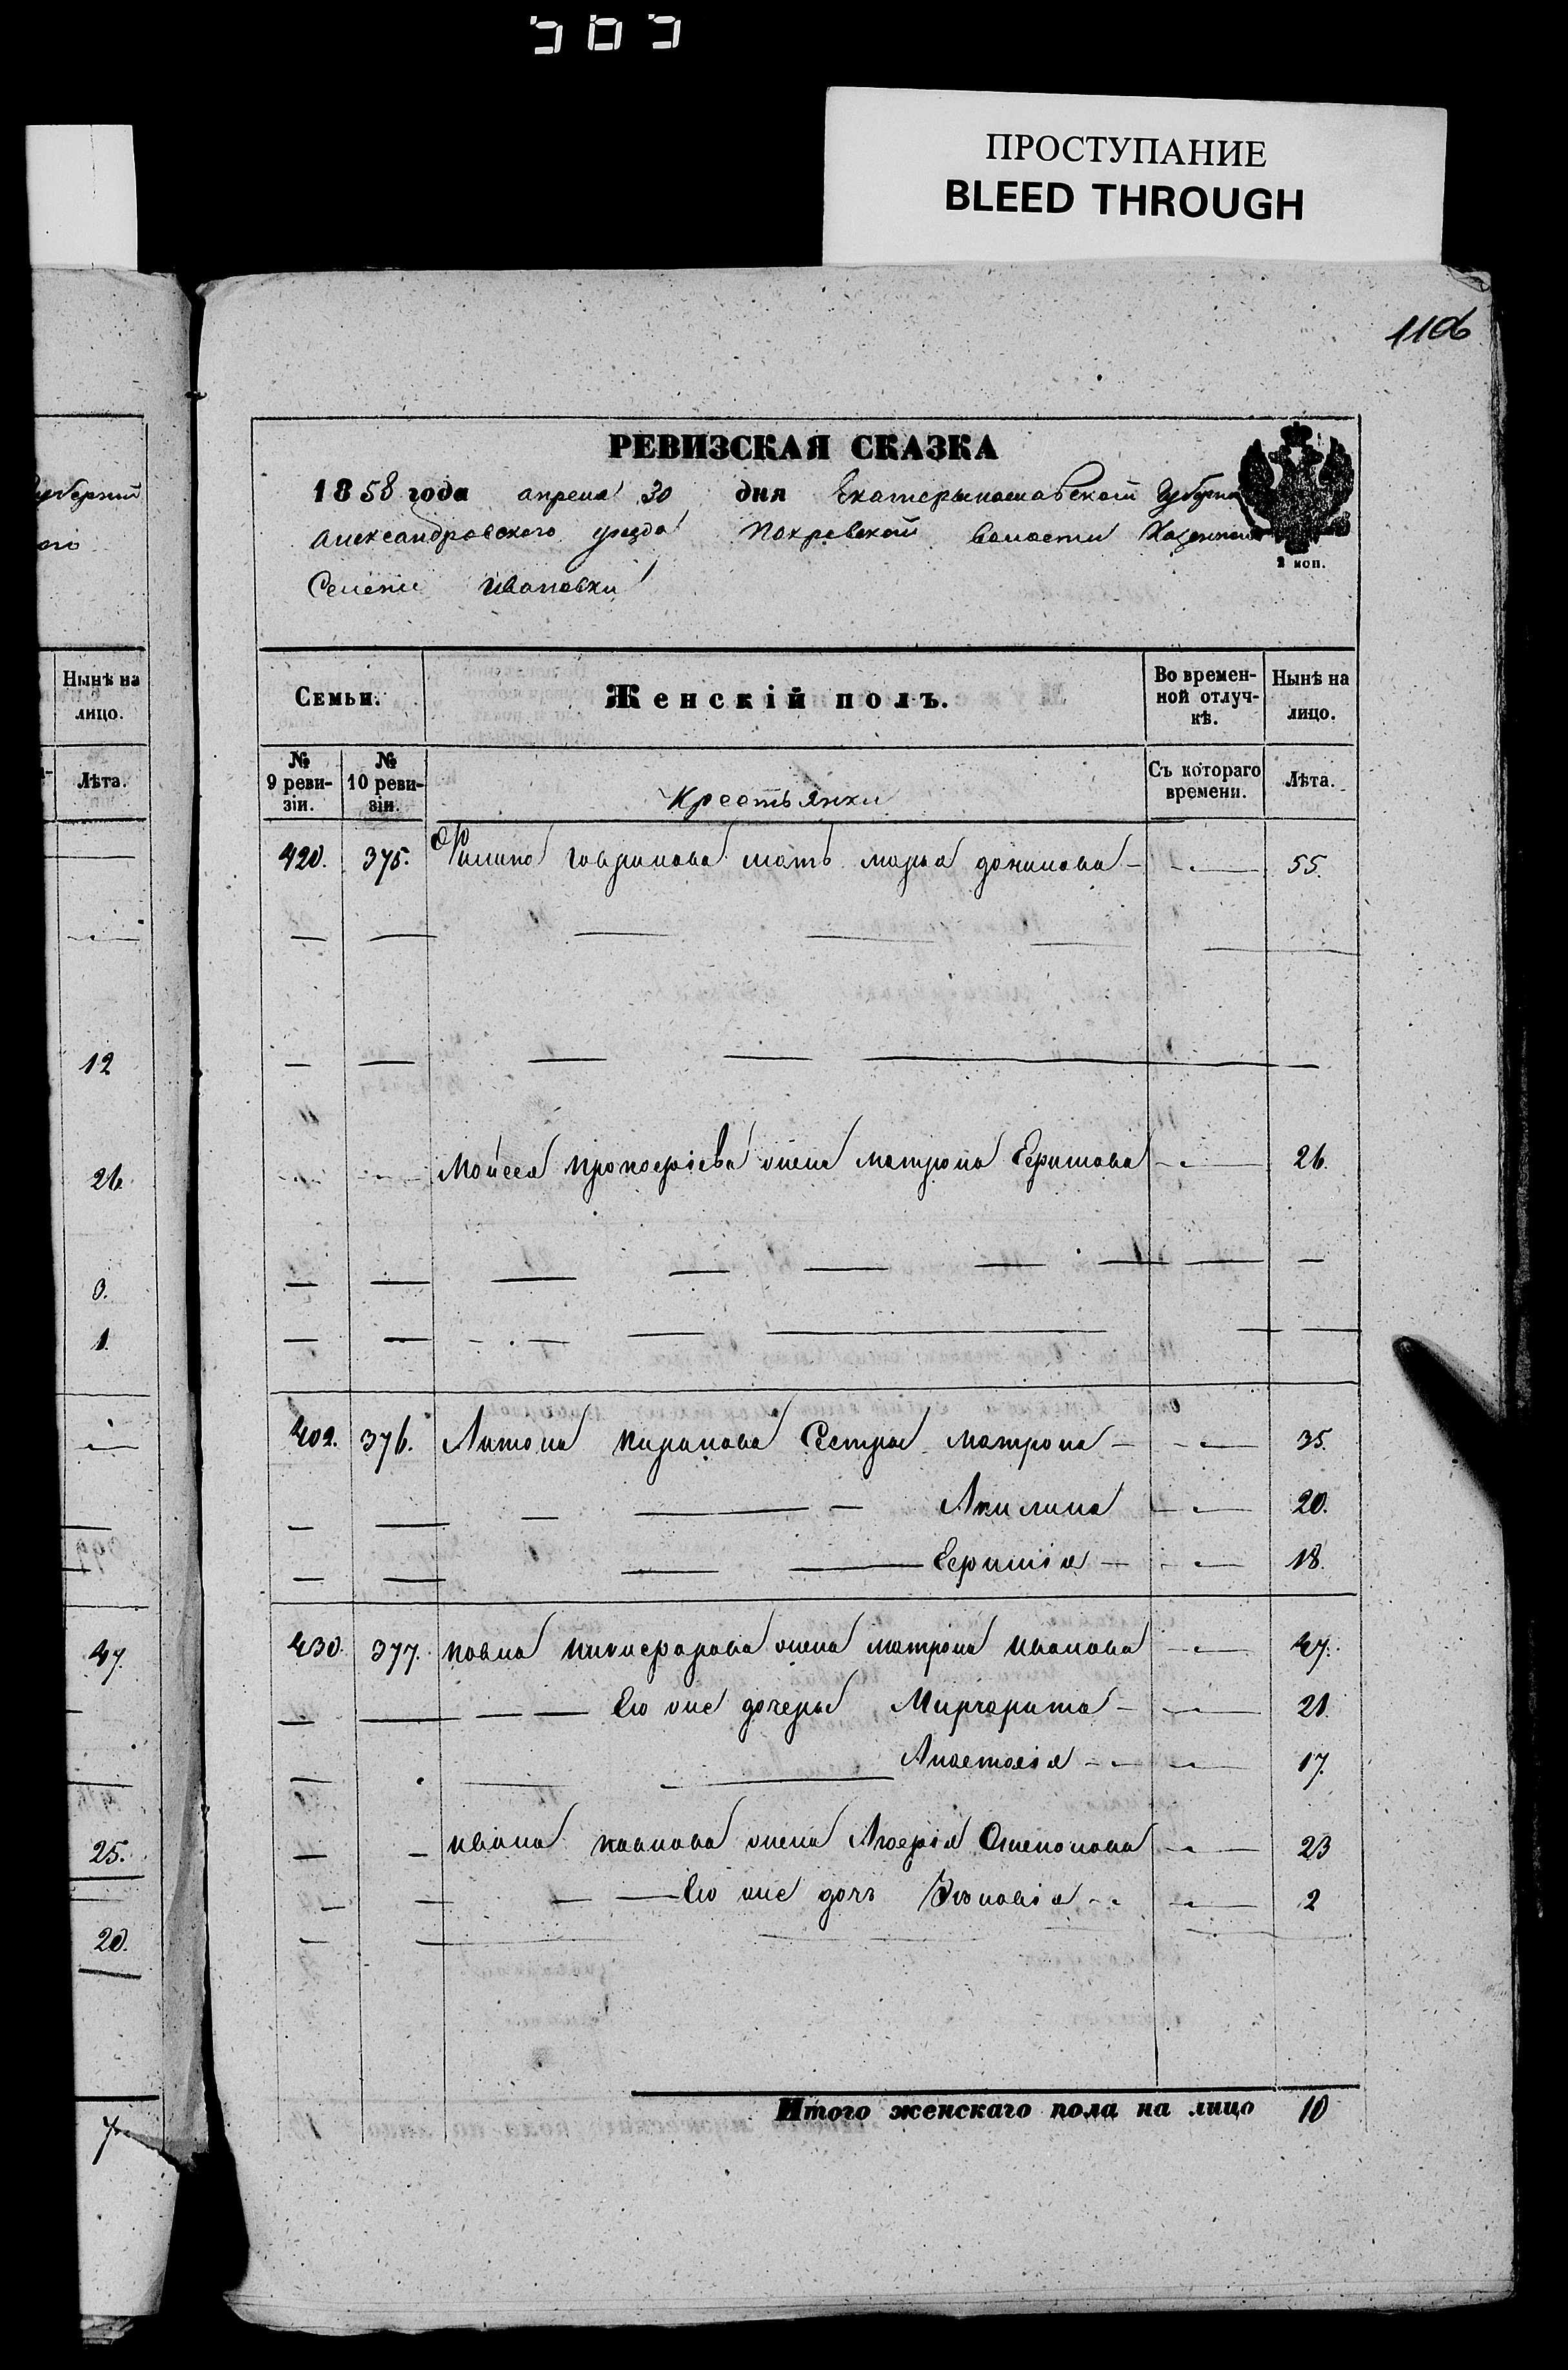 ПРОСТУПАНИЕ
BLEED THROUGH
1106
РЕВИЗСКАЯ СКАЗКА
1858 года апреля 30 дня Екатеринославской Губерни
Александровского уезда Покровской волости Казенного
Селенія Ивановки
2 коп.
Семьи. Женскій полъ. Во временной отлучкѣ. Нынѣ на лицо.
№ 9 ревизіи. № 10 ревизіи. Крестьянки Съ котораго времени. Лѣта.
420. 375. Филипа Гаврилова мать Марья Данилова — 55.
Мойсея Прокофіева жена Матрона Ефимова — 26.
402. 376. Антона Кирилова Сестры Матрона — 35.
Акилина — 20.
Ефимія — 18.
430. 377. Павла Никифорова жена Матрона Иванова — 47.
Его же дочеры Маргарита — 21.
Анастасія — 17.
Ивана Павлова жена — 23
Его же дочь — 2
Итого женскаго пола на лицо 10
Губерніи
Нынѣ на лицо.
Лѣта.
12
26.
0.
1.
47.
25.
20.
7